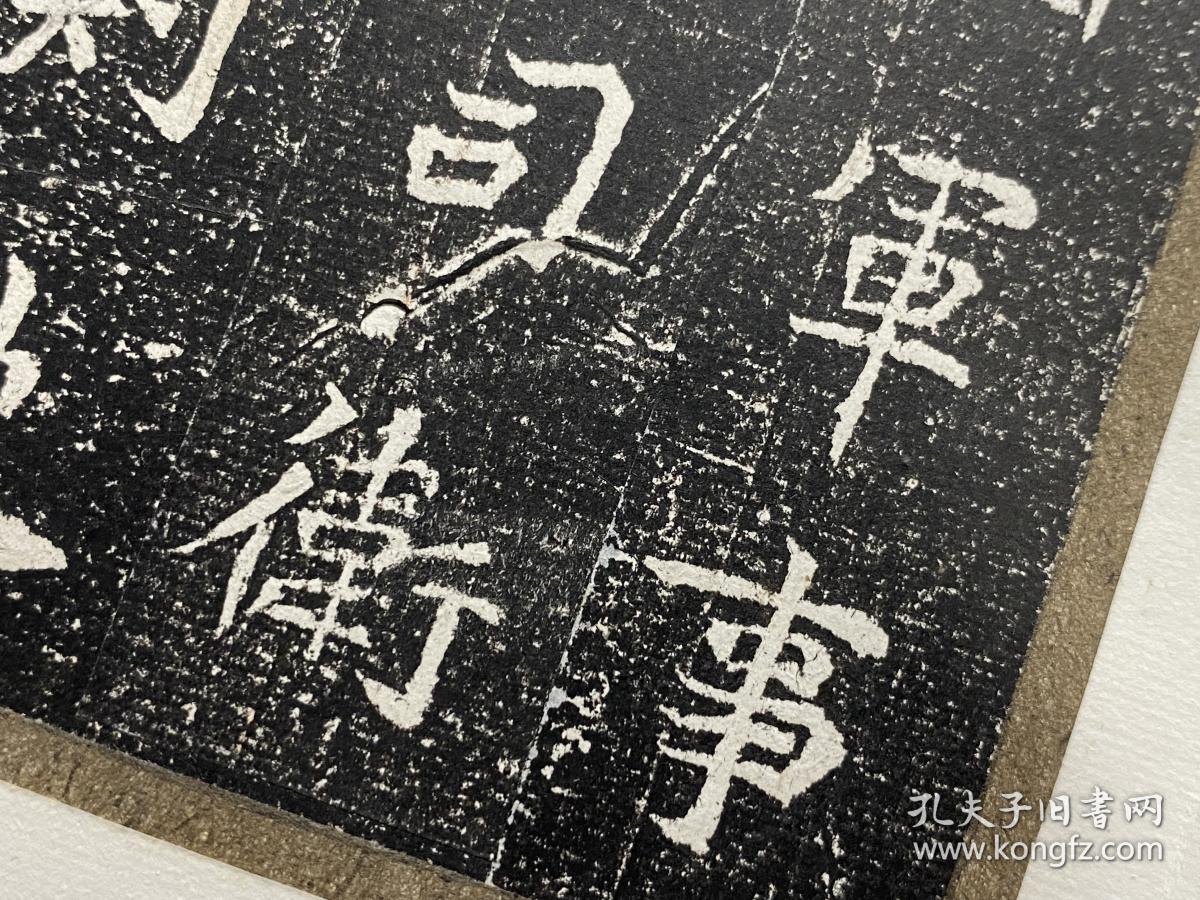 軍事
司衛
孔夫子旧書网
www.kongfz.com